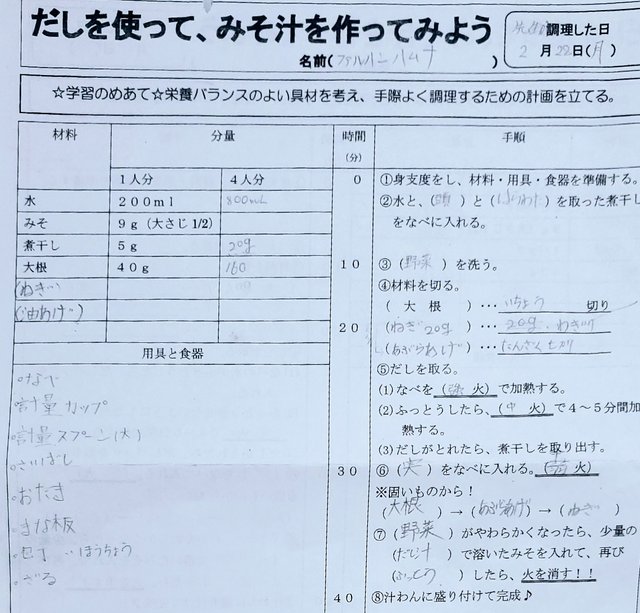 だしを使って、みそ汁を作ってみよう
調理した日
名前(ファルハン ハムナ)
2月22日(月)
☆学習のめあて☆栄養バランスのよい具材を考え、手際よく調理するための計画を立てる。
材料 分量 時間(分) 手順
1人分 4人分
水 200ml 800mL
みそ 9g(大さじ1/2)
煮干し 5g 20g
大根 40g 160
(ねぎ)
(油あげ)
用具と食器
。なべ
。計量カップ
。計量スプーン(大)
。さいばし
。おたま
。まな板
。包丁 ..ほうちょう
。ざる
0 ①身支度をし、材料・用具・食器を準備する。
②水と、(頭)と(はらわた)を取った煮干し
をなべに入れる。
10 ③(野菜)を洗う。
④材料を切る。
(大根)・・・いちょう切り
20 (ねぎ20g)・・・20g.
(あぶらあげ)・・・たんざく切り
⑤だしを取る。
(1)なべを(強火)で加熱する。
(2)ふっとうしたら、(中火)で4~5分間加
熱する。
(3)だしがとれたら、煮干しを取り出す。
30 ⑥(実)をなべに入れる。(中火)
※固いものから!
(大根)→(あぶらあげ)→(ねぎ)
⑦(野菜)がやわらかくなったら、少量の
(だし汁)で溶いたみそを入れて、再び
(ふっとう)したら、火を消す!!
40 ⑧汁わんに盛り付けて完成♪